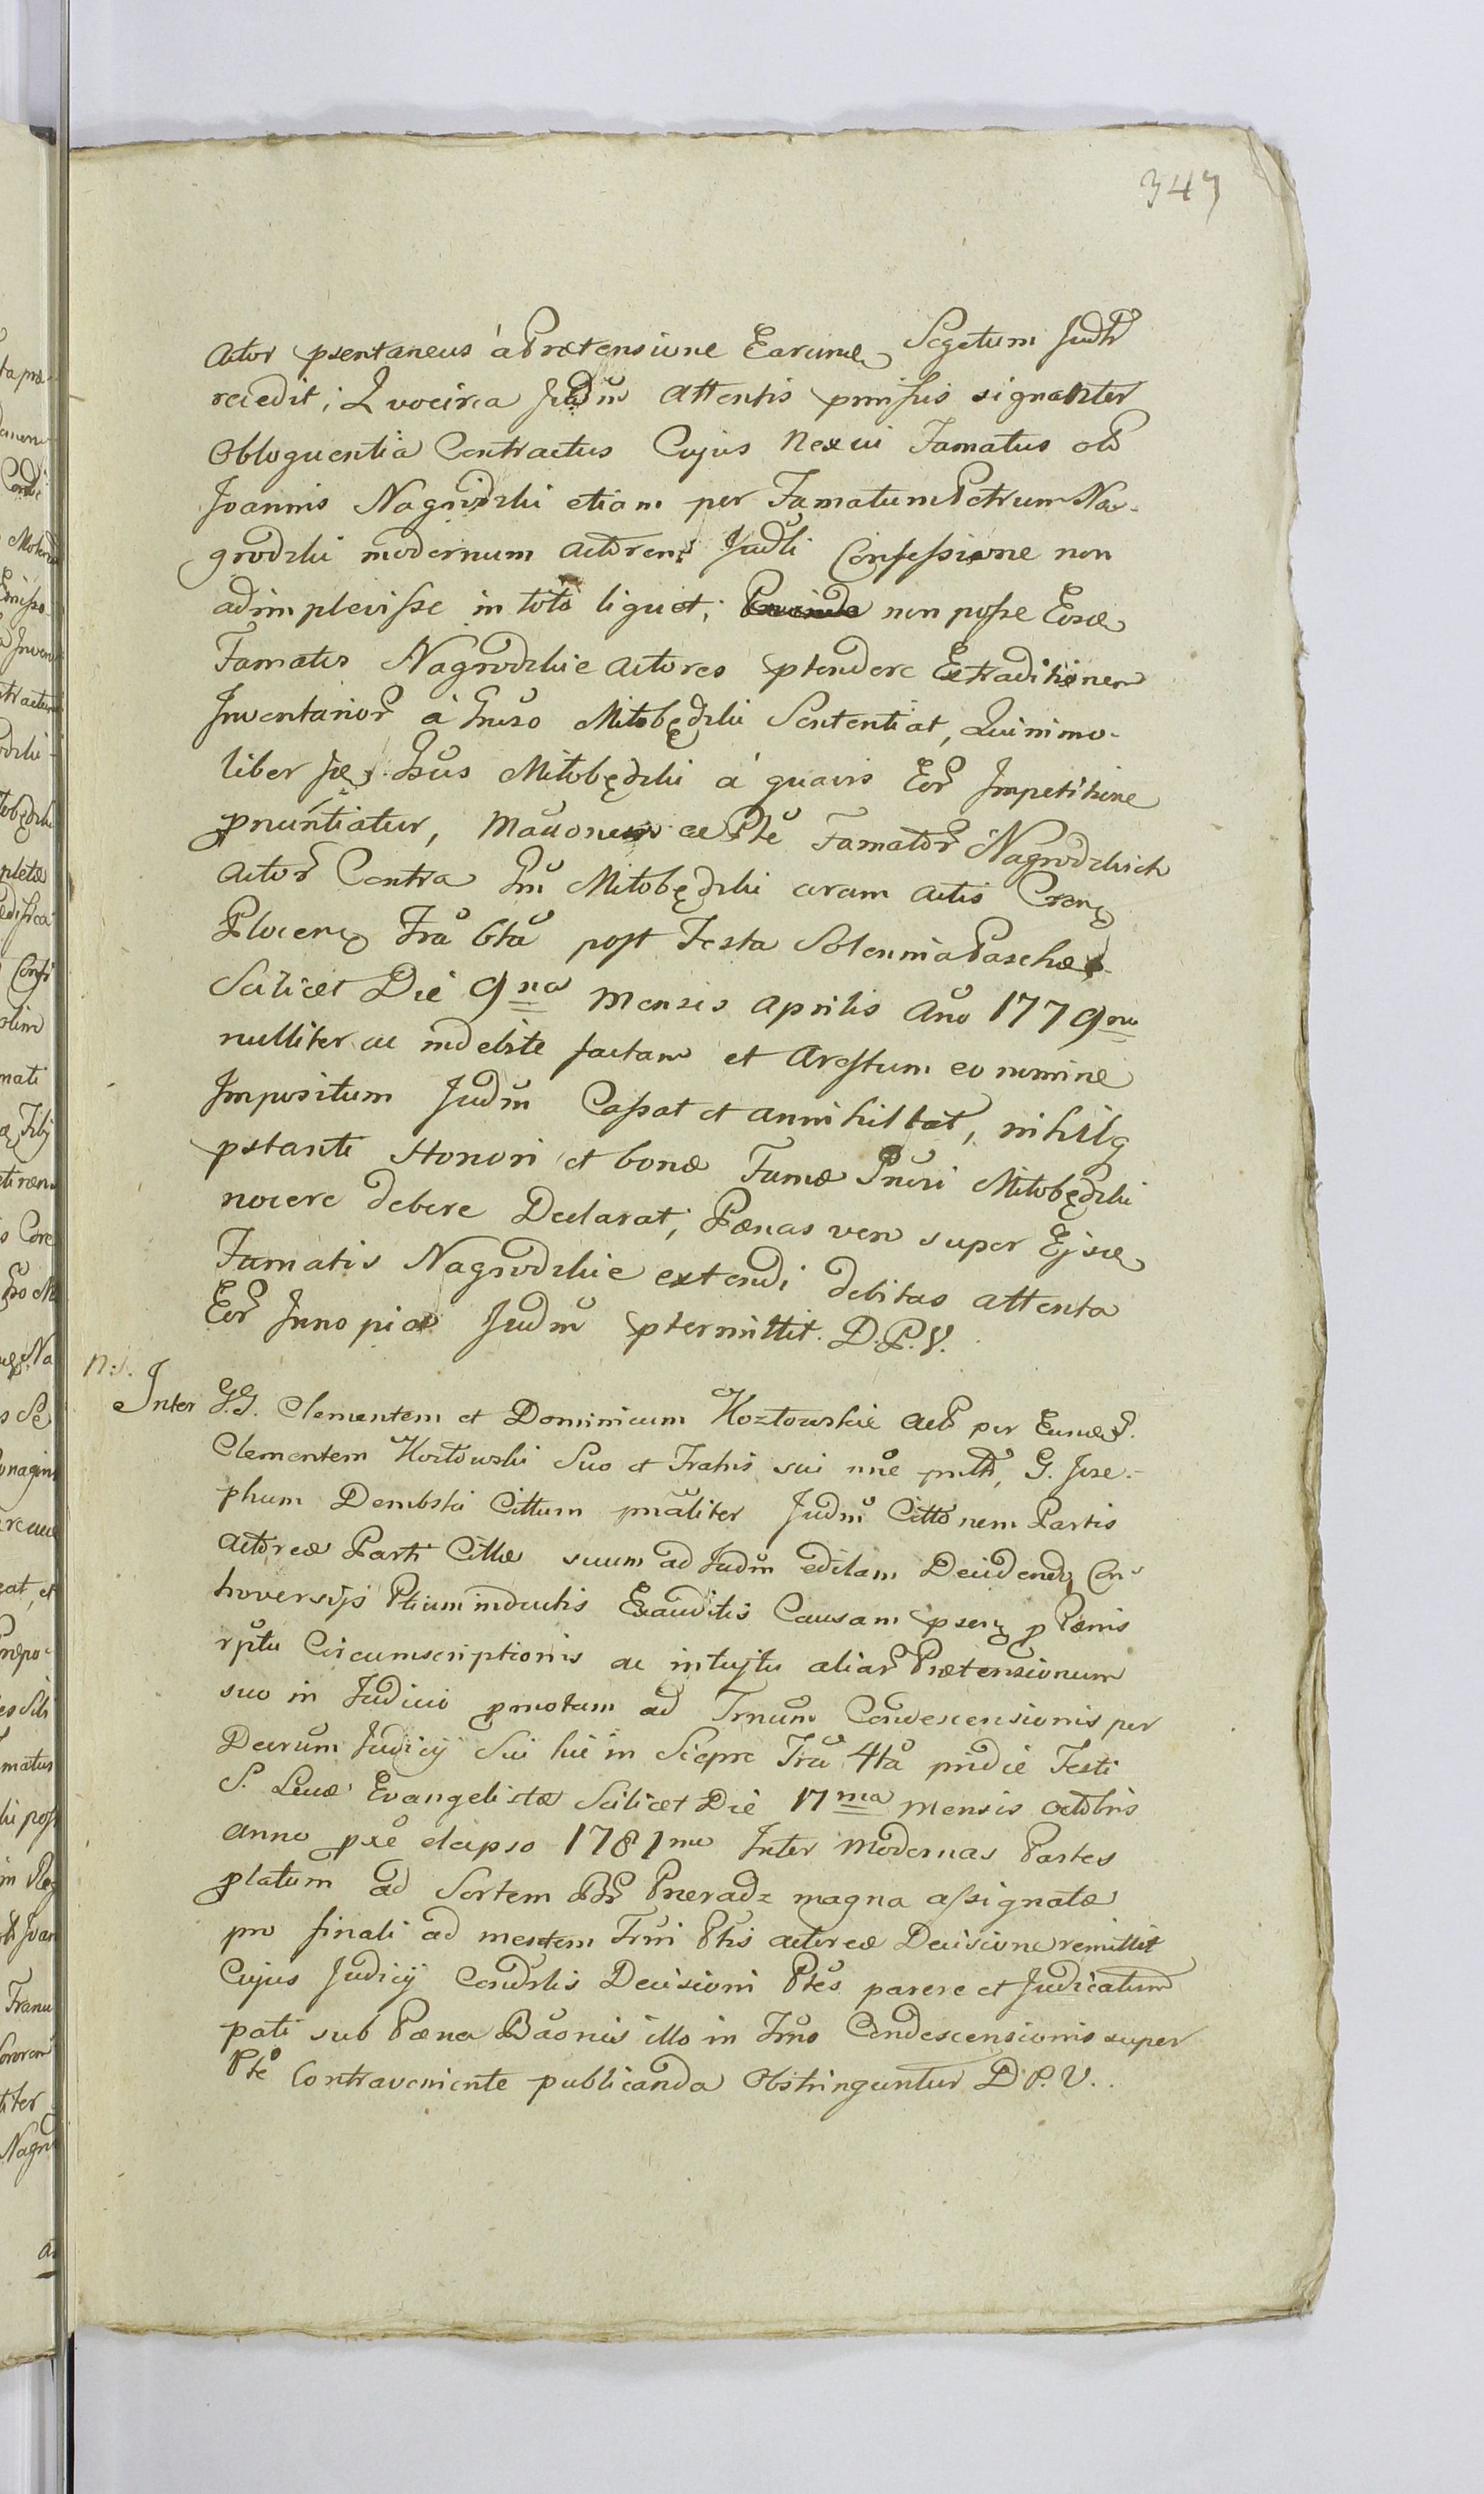 347
Actor psentaneus à Prætensione Earume Segetum Judtr
recedit; Quocirca Judm attentis pmissis signanter
Obloquentia Contractus Cujus Nexui Famatus ol
Joannis Nagrodzki etiam per Famatum Petrum Na-
grodzki modernum actorem Judli Confessione non
adimplevisse in toto liquet; non posse Eosd
Famatos Nagrodzkie actores ptendere Extraditionem
Inventarior à Gnso Miłobędzki Sententiat, Quinimo
liber Gsus Miłobędzki à quavis Eor Impetitione
pnuntiatur, Maonem ex Pte Famator Nagrodzkich
Actor Contra Gm Miłobędzki coram actis Cren
Plocen Fria 6ta post Festa Solennia Paschæ
Scilicet Die 9na Mensis Aprilis Ano 1779no
nulliter ac indebite factam et Arestum eo nomine
Impositum Judm Cassat et annihillat, nihilq
pstante Honori et bonæ Famæ Gnsi Miłobędzki
nocere debere Declarat; Pænas vero super Ejsd
Famatis Nagrodzkie extendi debitas attenta
Eor Innopia Judm ptermittit. D.P.V.
N: 5.
Inter G.G. Clementem et Dominicum Kozłowskie act per Eumd G.
Clementem Kozłowski Suo et Fratris sui nne pnltr, G. Jose-
phum Dembski Cittum pnaliter Judm Cittonem Partis
Actoreæ Parti Cittæ suum ad Judm editam Decidend Con-
troversijs Ptium inductis Exauditis Causam psen p Pænis
rptu Circumscriptionis ac intujtu aliar Prætensionum
suo in Judicio pmotam ad Trnum Condescensionis per
Decrum Judicij Sui hic in Sierpc Fria 4ta pridie Festi
S. Lucæ Evangelistæ Scilicet Die 17ma Mensis Octobris
anno pxe elapso 1781mo Inter modernas Partes
platum ad Sortem Br Pneradz magna assignatæ
pro finali ad mentem Trni Ptis actoreæ Decisione remittit
Cujus Judicij Condslis Decisioni Ptes parere et Judicatum
pati sub Pæna Baonis illo in Trno Condescensionis super
Pte Contraveniente publicanda Obstringuntur D.P.V.